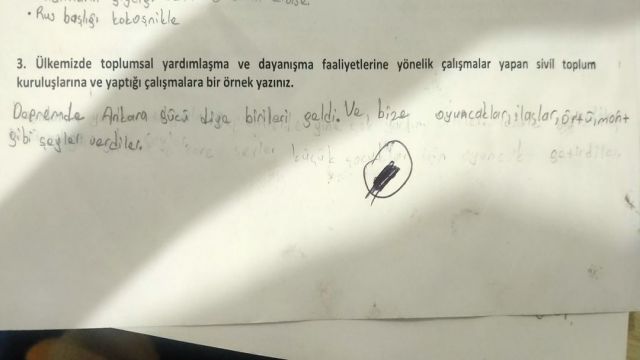 • Rus başlığı kokoşnikle
3. Ülkemizde toplumsal yardımlaşma ve dayanışma faaliyetlerine yönelik çalışmalar yapan sivil toplum
kuruluşlarına ve yaptığı çalışmalara bir örnek yazınız.
Depremde Ankara gücü diye birileri geldi. Ve, bize oyuncaklar, ilaçlar, örtü, mont
gibi şeyler verdiler.
küçük için oyuncak getirdiler